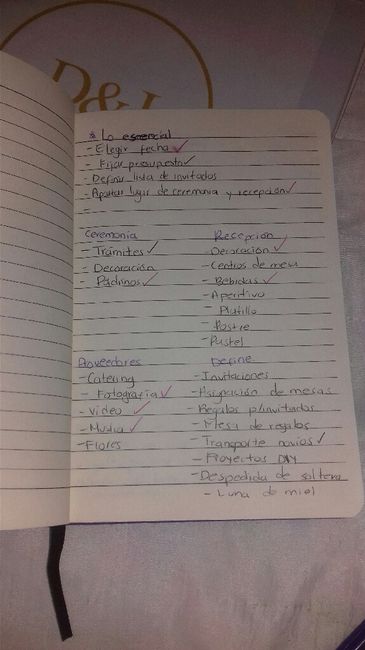 D&L
* Lo esencial
- Elegir fecha ✓
- Fijar presupuesto ✓
- Definir lista de invitados
- Apartar lugar de ceremonia y recepción ✓
Ceremonia
- Trámites ✓
- Decoración
- Padrinos ✓
Recepción
- Decoración ✓
- Centros de mesa
- Bebidas ✓
- Aperitivo
- Platillo
- Postre
- Pastel
Proveedores
- Catering
- Fotografía ✓
- Video ✓
- Música ✓
- Flores
Define
- Invitaciones
- Asignación de mesas
- Regalos p/invitados
- Mesa de regalos
- Transporte novios ✓
- Proyectos DIY
- Despedida de soltera
- Luna de miel